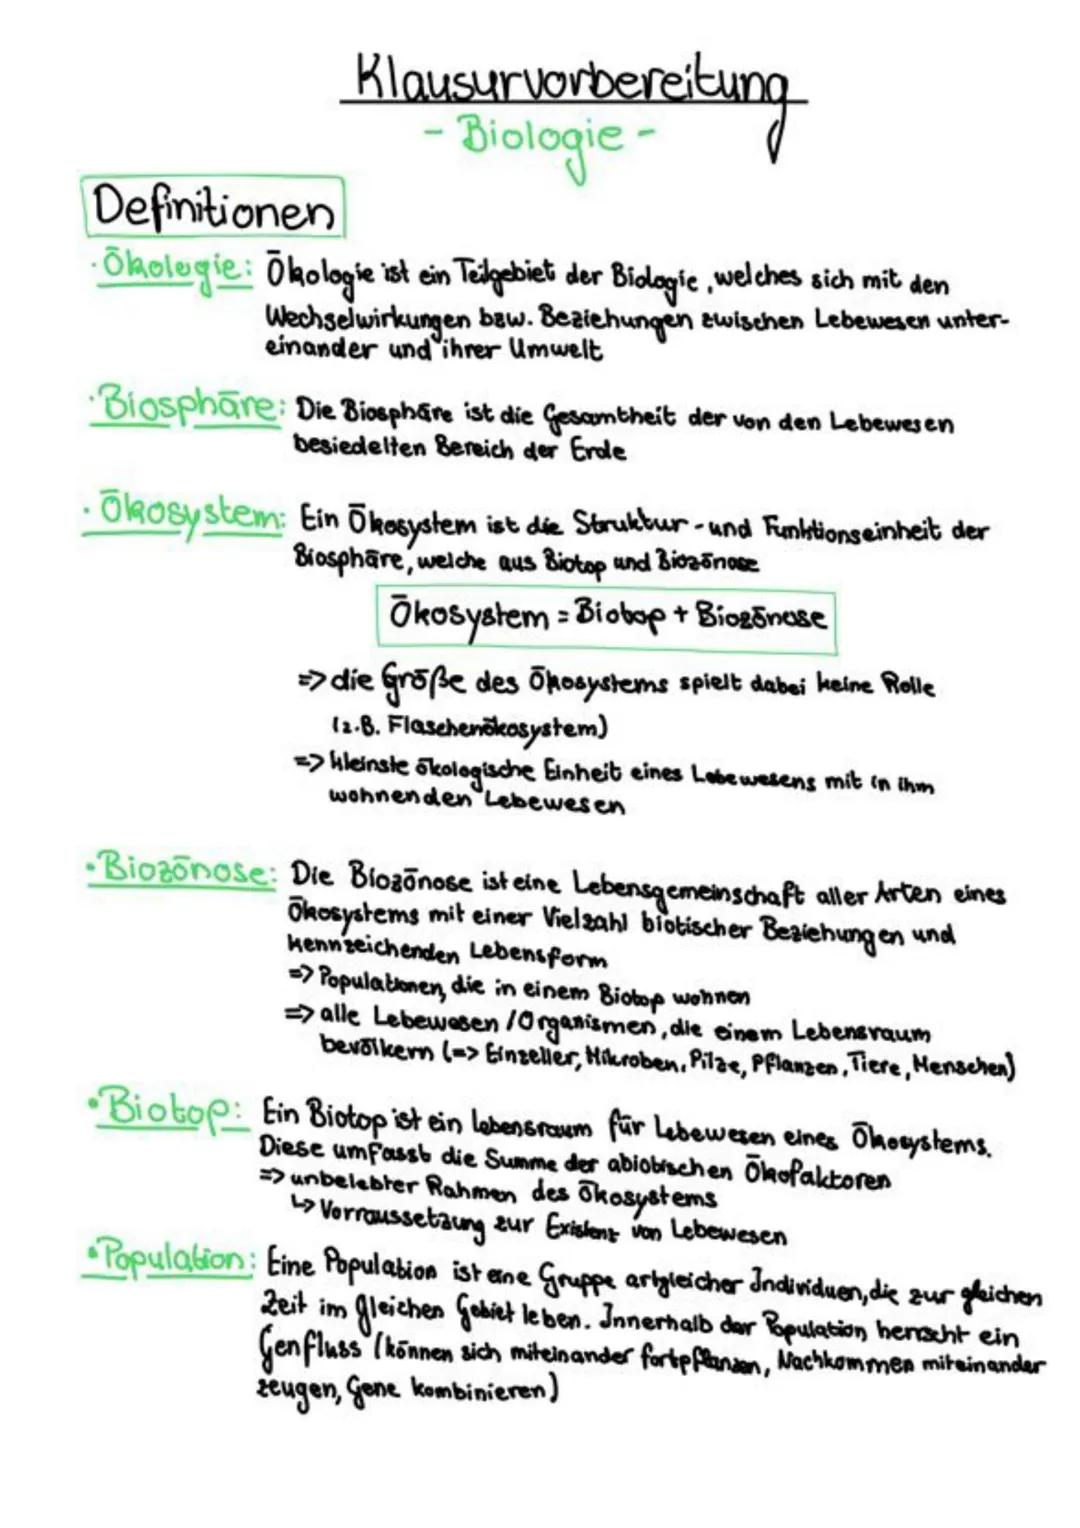 Klausurvorbereitung
- Biologie -
Definitionen
· Ökologie: Ökologie ist ein Teilgebiet der Biologie, welches sich mit den
Wechselwirkungen bzw. Beziehungen zwischen Lebewesen unter-
einander und ihrer Umwelt
· Biosphäre: Die Biosphäre ist die Gesamtheit der von den Lebewesen
besiedelten Bereich der Erde
· Ökosystem: Ein Ökosystem ist die Struktur - und Funktionseinheit der
Biosphäre, welche aus Biotop und Biozönose
Ökosystem = Biotop + Biozönose
=> die Größe des Ökosystems spielt dabei keine Rolle
(z.B. Flaschenökosystem)
=> kleinste ökologische Einheit eines Lebewesens mit in ihm
wohnenden Lebewesen
· Biozönose: Die Biozönose ist eine Lebensgemeinschaft aller Arten eines
Ökosystems mit einer Vielzahl biotischer Beziehungen und
kennzeichenden Lebensform
=> Populationen, die in einem Biotop wohnen
=> alle Lebewesen / Organismen, die einem Lebensraum
bevölkern (=> Einzeller, Mikroben, Pilze, Pflanzen, Tiere, Menschen)
· Biotop: Ein Biotop ist ein lebensraum für Lebewesen eines Ökosystems.
Diese umfasst die Summe der abiotischen Ökofaktoren
=> unbelebter Rahmen des Ökosystems
↳ Vorraussetzung zur Existenz von Lebewesen
· Population: Eine Population ist eine Gruppe artgleicher Individuen, die zur gleichen
Zeit im gleichen Gebiet leben. Innerhalb der Population herrscht ein
Genfluss (können sich miteinander fortpflanzen, Nachkommen miteinander
zeugen, Gene kombinieren)